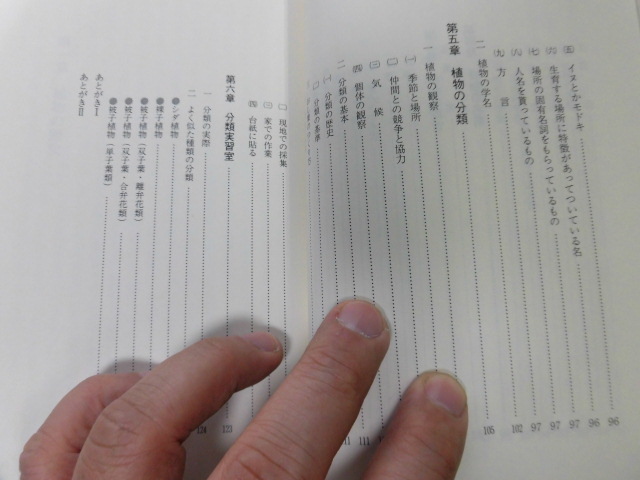 ㈤ イヌとかモドキ 96
㈥ 生育する場所に特徴があってついている名 96
㈦ 場所の固有名詞をもらっているもの 97
㈧ 人名を貰っているもの 97
㈨ 方言 102
二 植物の学名 105
第五章 植物の分類
一 植物の観察
㈠ 季節と場所
㈡ 仲間との競争と協力
㈢ 気候
㈣ 個体の観察 111
二 分類の基本
㈠ 分類の歴史
㈡ 分類の基準
㈡ 現地での採集
㈢ 家での作業
㈣ 台紙に貼る
第六章 分類実習室 123
一 分類の実際 124
二 よく似た種類の分類
●シダ植物
●裸子植物
●被子植物(双子葉・離弁花類)
●被子植物(双子葉・合弁花類)
●被子植物(単子葉類)
あとがきⅠ
あとがきⅡ